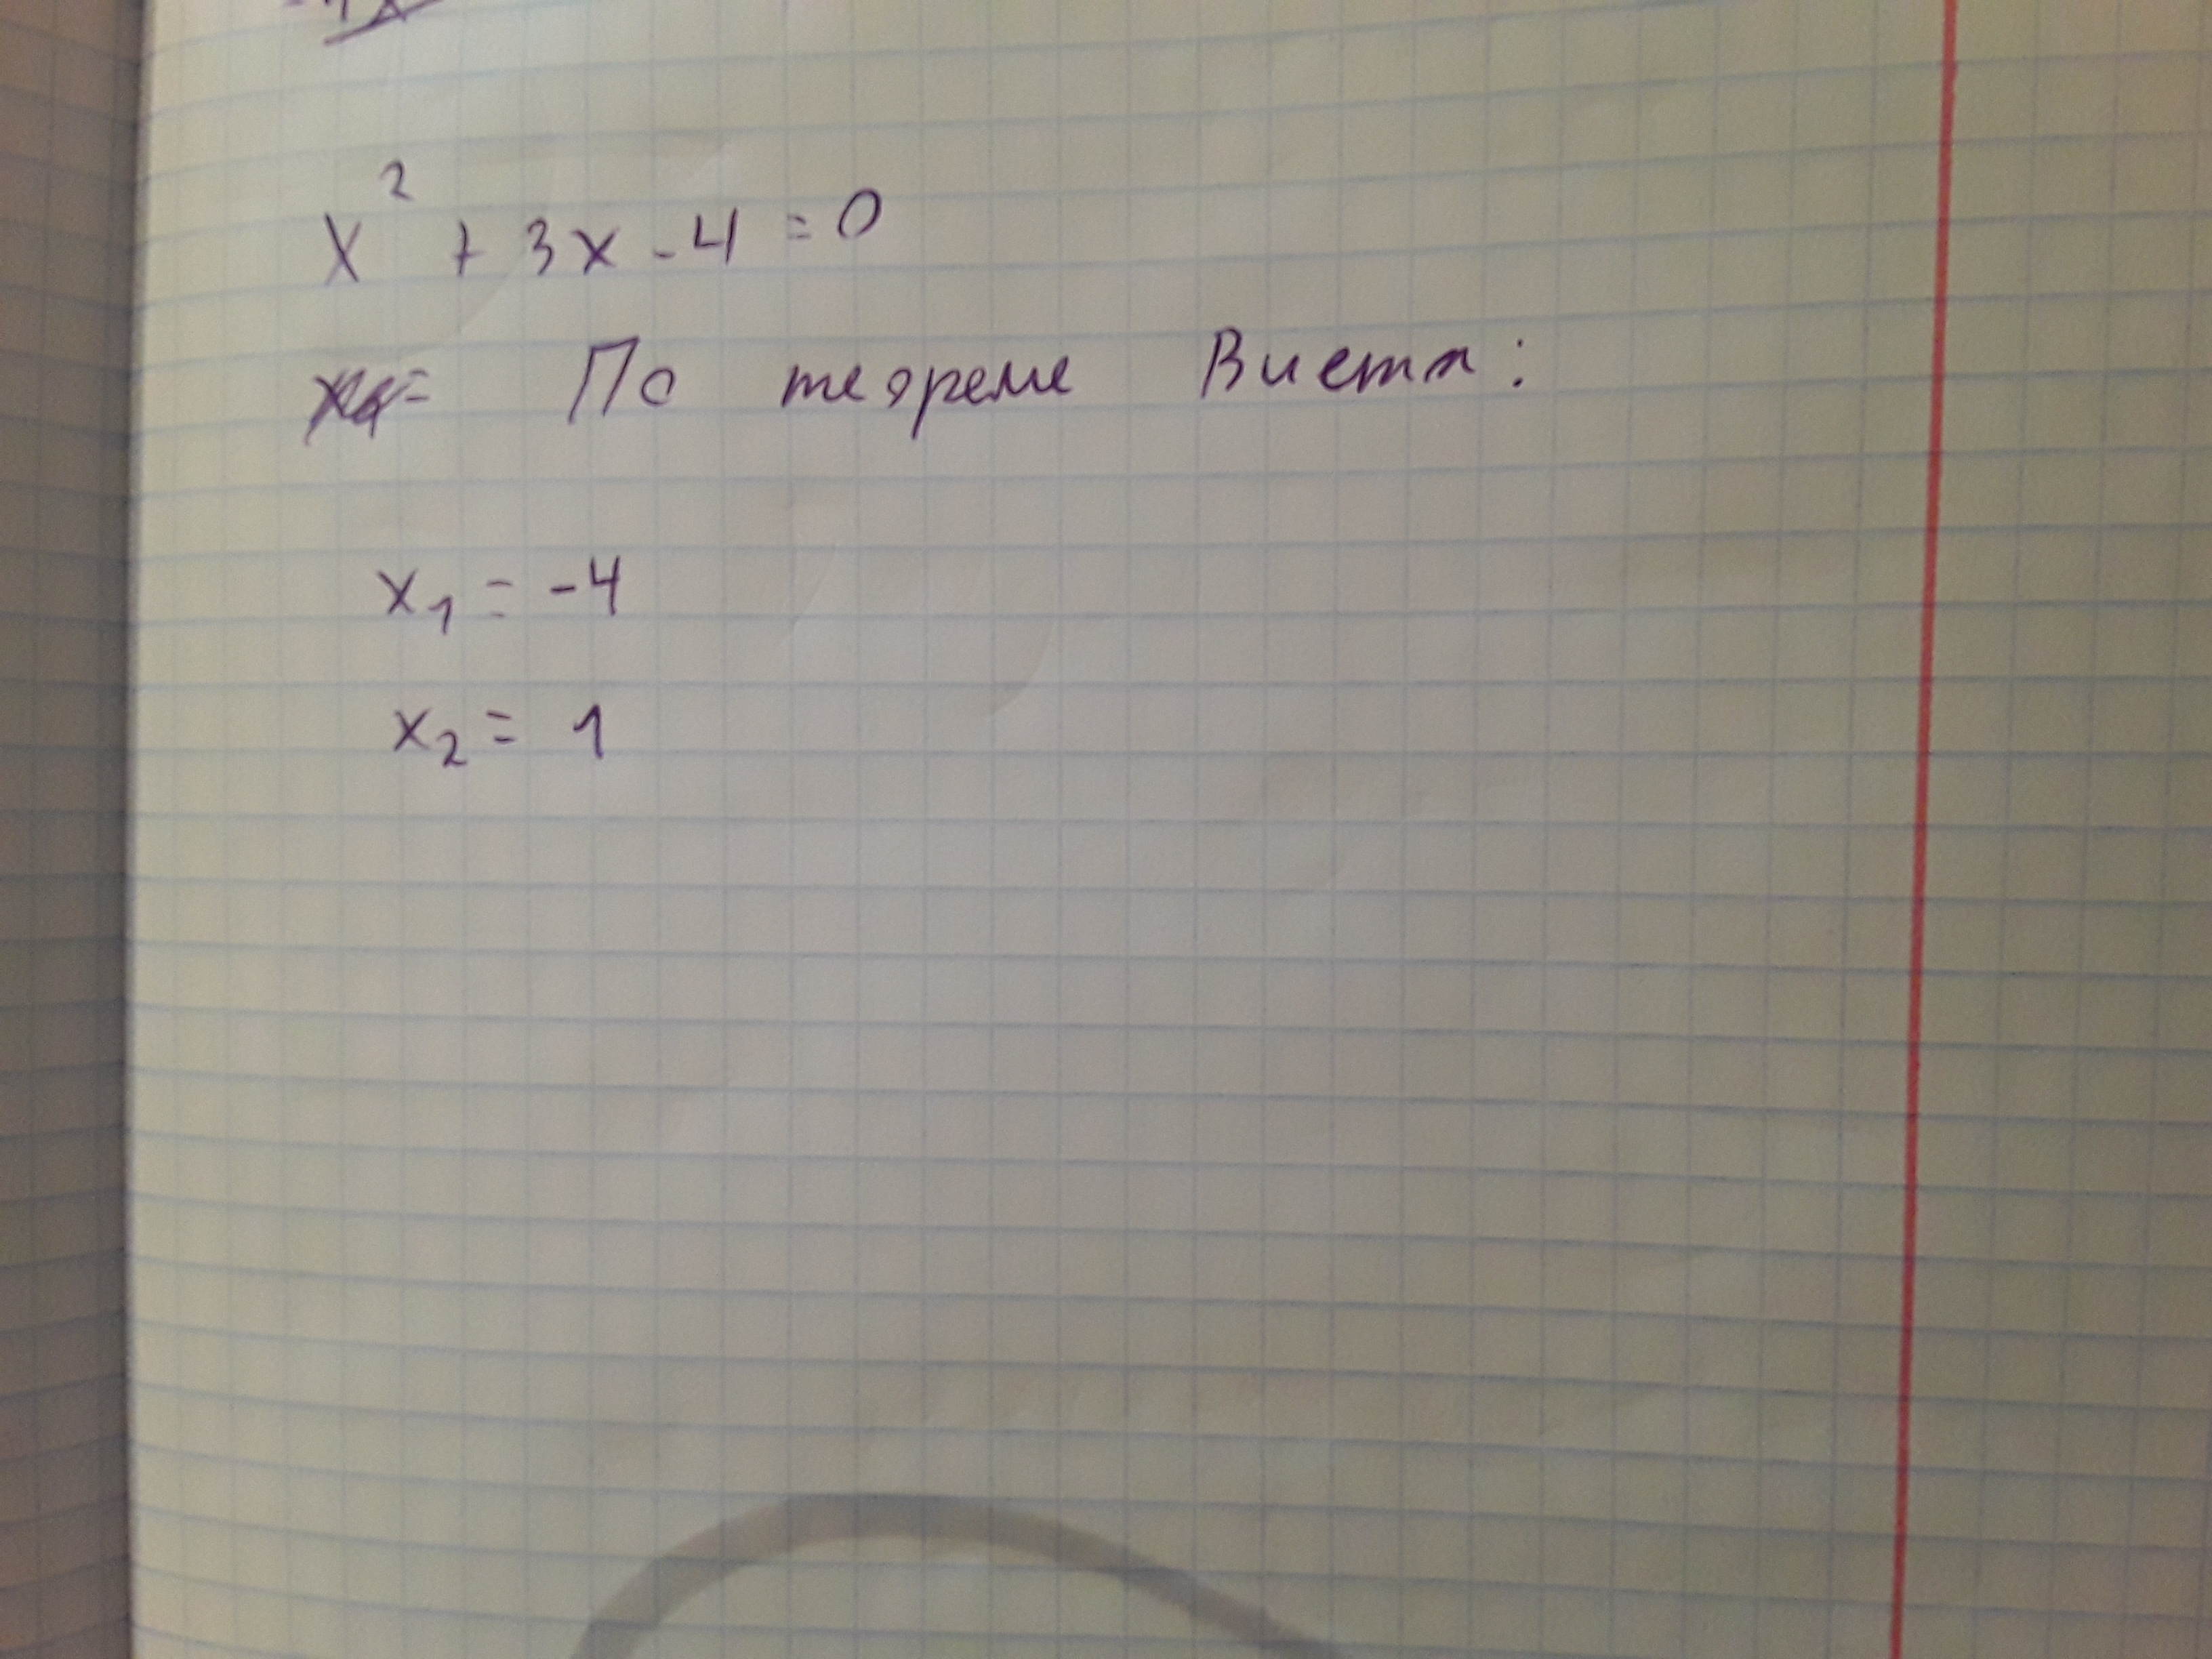 x² + 3x - 4 = 0
По теореме Виета:
x₁ = -4
x₂ = 1